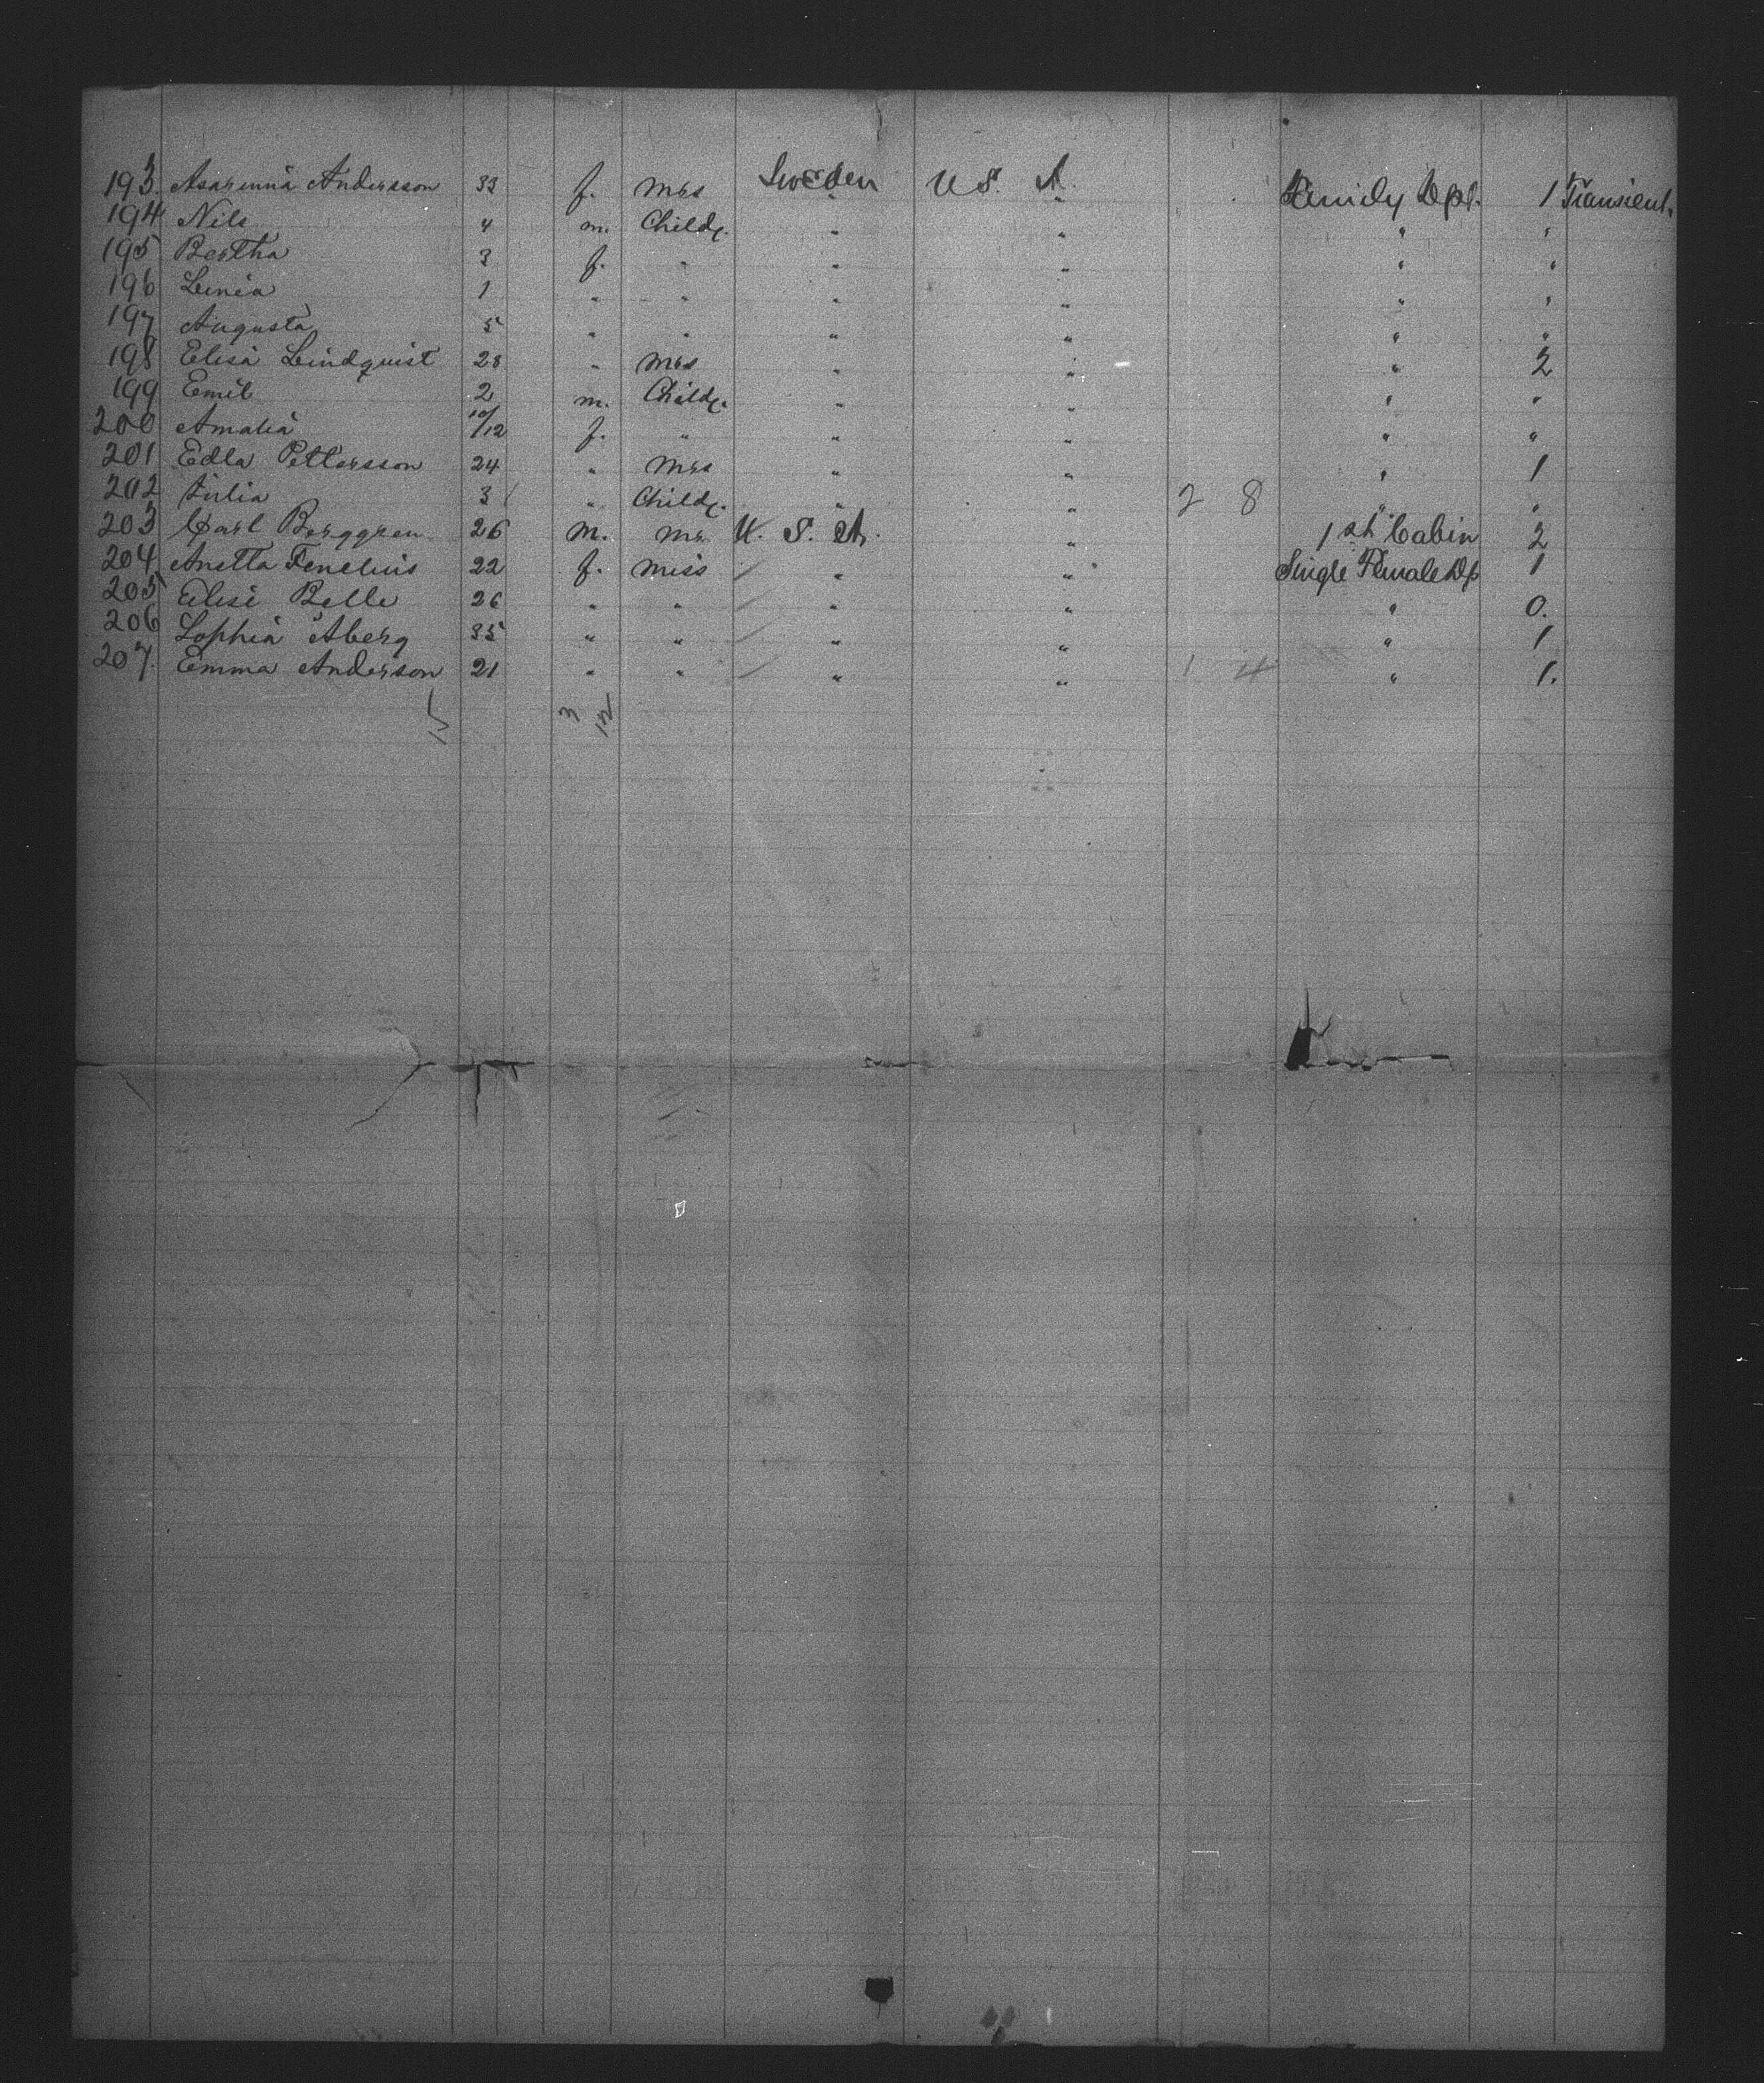 193. Asarinna Andersson 33 f. Mrs Sweden U S. A. Family Dpt. 1 Transient.
194 Nils 4 m. Childr. " " " "
195 Bertha 3 f. " " " " "
196 Linéa 1 " " " " " "
197 Augusta 5 " " " " " "
198 Elisa Lindquist 28 " Mrs " " " 2
199 Emil 2 m. Childr. " " " "
200 Amalia 10/12 f. " " " " "
201 Edla Pettersson 24 " Mrs " " " 1
202 Julia 3 " Childr. " " 2 8 " "
203 Carl Berggren 26 m. Mr. U. S. A. " 1st Cabin 2
204 Anetta Fenelius 22 f. Miss " " Single Female Dp 1
205 Elise Belle 26 " " " " " 0.
206 Sophia Åberg 35 " " " " " 1
207. Emma Anderson 21 " " " " 1 4 " 1.
15 3 12